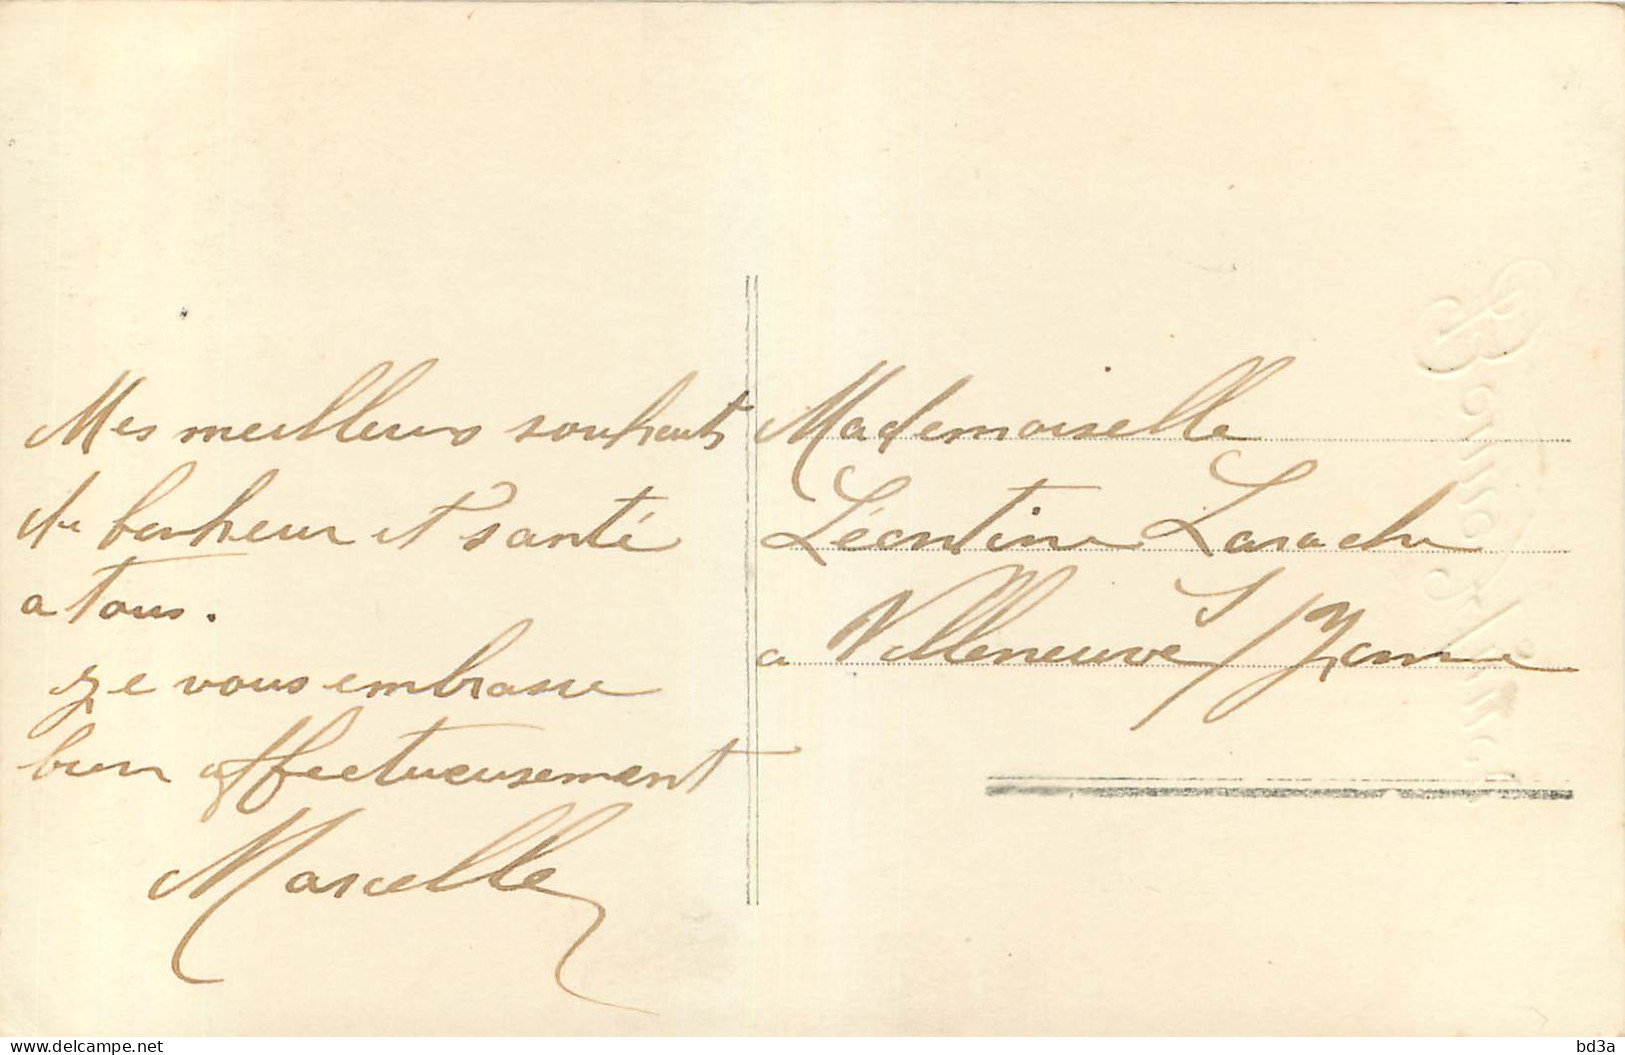 Mes meilleurs souhaits
de bonheur et santé
a tous.
Je vous embrasse
bien affectueusement
Marcelle
Mademoiselle
Léontine Larache
a Villeneuve s/ Yonne
Bonne Année
www.delcampe.net
bd3a